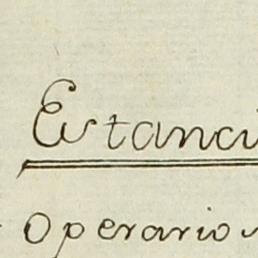 Estanci
Operarios